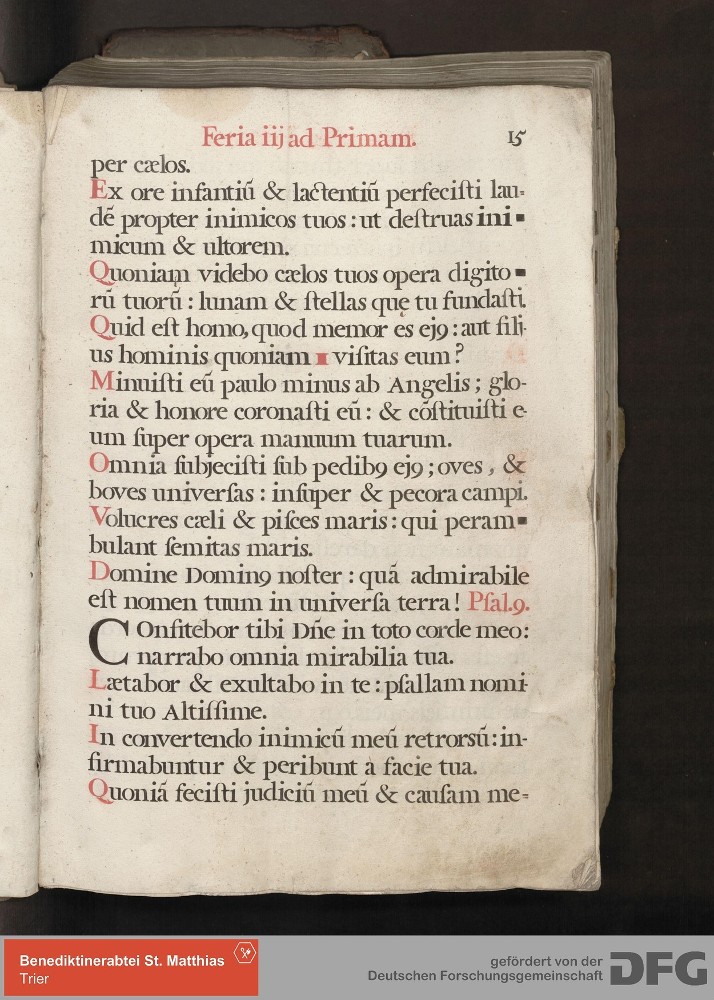 Feria iij ad Primam. 15
per cælos.
Ex ore infantiũ & lactentiũ perfeciſti lau⸗
dẽ propter inimicos tuos : ut deſtruas ini
micum & ultorem.
Quoniam videbo cælos tuos opera digito
rũ tuorũ : lunam & ſtellas quę tu fundaſti.
Quid eſt homo, quod memor es ejꝯ : aut fili-
us hominis quoniam viſitas eum ?
Minuiſti eũ paulo minus ab Angelis ; glo-
ria & honore coronaſti eũ : & cõſtituiſti e-
um ſuper opera manuum tuarum.
Omnia ſubjeciſti ſub pedibꝯ ejꝯ ; oves , &
boves univerſas : inſuper & pecora campi.
Volucres cæli & piſces maris : qui peram
bulant ſemitas maris.
Domine Dominꝯ noſter : quã admirabile
eſt nomen tuum in univerſa terra ! Pſal.9.
COnfitebor tibi Dñe in toto corde meo :
narrabo omnia mirabilia tua.
Lætabor & exultabo in te : pſallam nomi-
ni tuo Altiſſime.
In convertendo inimicũ meũ retrorsũ : in-
firmabuntur & peribunt a facie tua.
Quoniã feciſti judiciũ meũ & cauſam me⸗
Benediktinerabtei St. Matthias
Trier
gefördert von der
Deutschen Forschungsgemeinschaft DFG